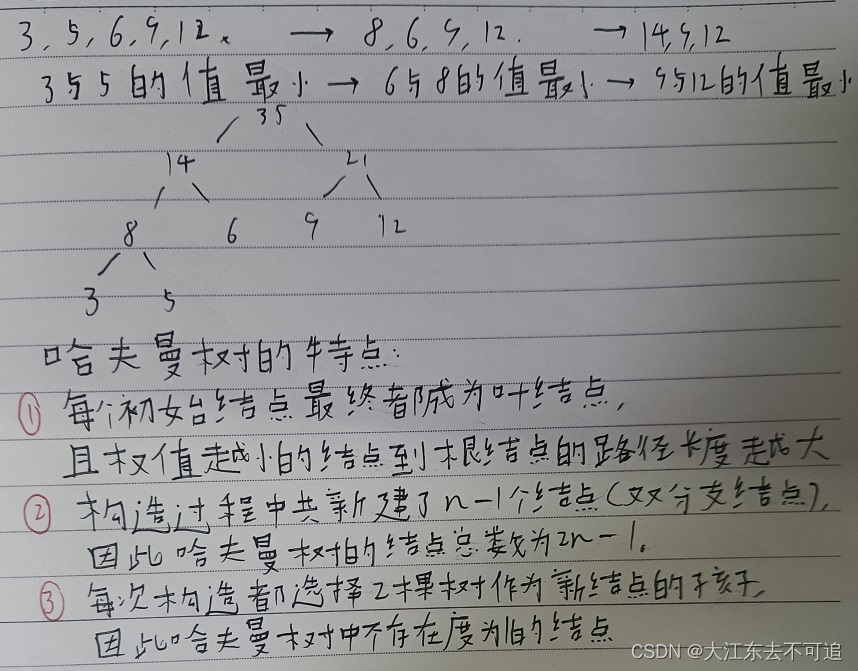 3, 5, 6, 9, 12. → 8, 6, 9, 12. → 14, 9, 12
3与5的值最小 → 6与8的值最小 → 9与12的值最小
35
14 21
8 6 9 12
3 5
哈夫曼树的特点:
① 每个初始结点最终都成为叶结点,
且权值越小的结点到根结点的路径长度越大
② 构造过程中共新建了n-1个结点(双分支结点),
因此哈夫曼树的结点总数为2n-1.
③ 每次构造都选择2棵树作为新结点的子孩子,
因此哈夫曼树中不存在度为1的结点
CSDN @大江东去不可追